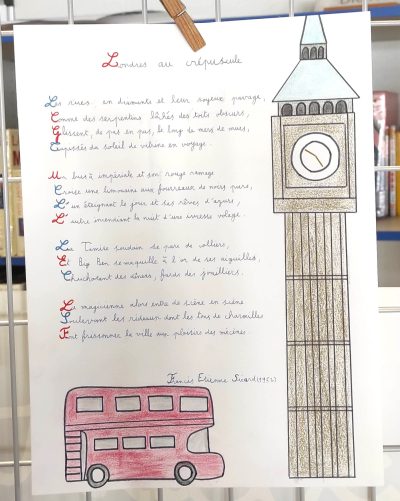 Londres au crépuscule
Les rues en diamants et leur soyeux pavage,
Comme des serpentins lâchés des toits obscurs,
Glissent, de pas en pas, le long de mers de murs,
du soleil de vitrine en voyage.
Un bus à impériale et son rouge ramage
Croise une limousine aux fourreaux de noirs purs,
L'un éteignant le jour et ses rêves d'azurs,
L'autre incendiant la nuit d'une ivresse volage.
La Tamise soudain se pare de colliers,
Et Big Ben se maquille à l'or de ses aiguilles,
Chuchotant des dîners, fards des joailliers.
La magicienne alors entre de scène en scène
Soulevant les rideaux dont les tons de charmilles
Font frissonner la ville aux plaisirs des mécènes.
Francis Etienne Sicard (1952)